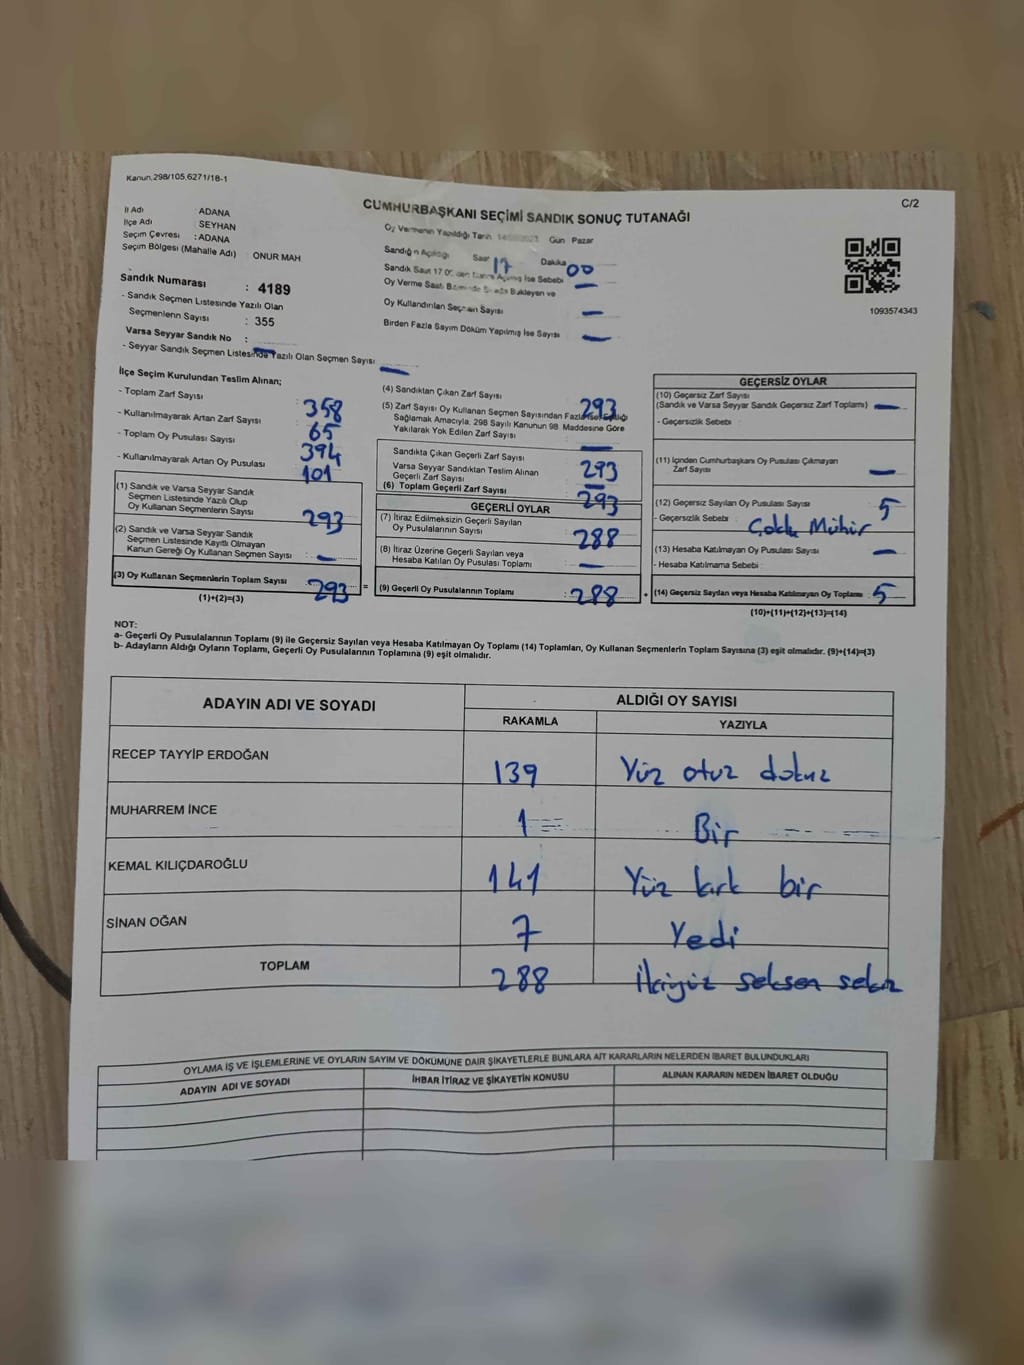 Kanun.298/105,6271/18-1
C/2
CUMHURBAŞKANI SEÇİMİ SANDIK SONUÇ TUTANAĞI
İl Adı ADANA
İlçe Adı SEYHAN
Seçim Çevresi : ADANA
Seçim Bölgesi (Mahalle Adı) : ONUR MAH
Oy Vermenin Yapıldığı Tarih Gün Pazar
Sandığın Açıldığı Saat 17 Dakika 00
Oy Kullandırılan Seçmen Sayısı —
Birden Fazla Sayım Döküm Yapılmış İse Sayısı —
1093574343
Sandık Numarası : 4189
- Sandık Seçmen Listesinde Yazılı Olan
Seçmenlerin Sayısı : 355
Varsa Seyyar Sandık No : —
- Seyyar Sandık Seçmen Listesinde Yazılı Olan Seçmen Sayısı : —
İlçe Seçim Kurulundan Teslim Alınan;
- Toplam Zarf Sayısı : 358
- Kullanılmayarak Artan Zarf Sayısı : 65
- Toplam Oy Pusulası Sayısı : 394
- Kullanılmayarak Artan Oy Pusulası : 101
(1) Sandık ve Varsa Seyyar Sandık
Seçmen Listesinde Yazılı Olup
Oy Kullanan Seçmenlerin Sayısı : 293
(2) Sandık ve Varsa Seyyar Sandık
Seçmen Listesinde Kayıtlı Olmayan
Kanun Gereği Oy Kullanan Seçmen Sayısı : —
(3) Oy Kullanan Seçmenlerin Toplam Sayısı : 293 =
(1)+(2)=(3)
(4) Sandıktan Çıkan Zarf Sayısı : 293
(5) Zarf Sayısı Oy Kullanan Seçmen Sayısından Fazla ise, Eşitliği
Sağlamak Amacıyla, 298 Sayılı Kanunun 98. Maddesine Göre
Yakılarak Yok Edilen Zarf Sayısı : —
Sandıkta Çıkan Geçerli Zarf Sayısı : 293
Varsa Seyyar Sandıktan Teslim Alınan
Geçerli Zarf Sayısı : —
(6) Toplam Geçerli Zarf Sayısı : 293
GEÇERLİ OYLAR
(7) İtiraz Edilmeksizin Geçerli Sayılan
Oy Pusulalarının Sayısı : 288
(8) İtiraz Üzerine Geçerli Sayılan veya
Hesaba Katılan Oy Pusulası Toplamı : —
(9) Geçerli Oy Pusulalarının Toplamı : 288 +
GEÇERSİZ OYLAR
(10) Geçersiz Zarf Sayısı
(Sandık ve Varsa Seyyar Sandık Geçersiz Zarf Toplamı) : —
- Geçersizlik Sebebi :
(11) İçinden Cumhurbaşkanı Oy Pusulası Çıkmayan
Zarf Sayısı : —
(12) Geçersiz Sayılan Oy Pusulası Sayısı : 5
- Geçersizlik Sebebi : Çoklu Mühür
(13) Hesaba Katılmayan Oy Pusulası Sayısı : —
- Hesaba Katılmama Sebebi :
(14) Geçersiz Sayılan veya Hesaba Katılmayan Oy Toplamı : 5
(10)+(11)+(12)+(13)=(14)
NOT:
a- Geçerli Oy Pusulalarının Toplamı (9) ile Geçersiz Sayılan veya Hesaba Katılmayan Oy Toplamı (14) Toplamları, Oy Kullanan Seçmenlerin Toplam Sayısına (3) eşit olmalıdır. (9)+(14)=(3)
b- Adayların Aldığı Oyların Toplamı, Geçerli Oy Pusulalarının Toplamına (9) eşit olmalıdır.
ADAYIN ADI VE SOYADI ALDIĞI OY SAYISI
RAKAMLA YAZIYLA
RECEP TAYYİP ERDOĞAN 139 Yüz otuz dokuz
MUHARREM İNCE 1 Bir
KEMAL KILIÇDAROĞLU 141 Yüz kırk bir
SİNAN OĞAN 7 Yedi
TOPLAM 288 İkiyüz seksen sekiz
OYLAMA İŞ VE İŞLEMLERİNE VE OYLARIN SAYIM VE DÖKÜMÜNE DAİR ŞİKAYETLERLE BUNLARA AİT KARARLARIN NELERDEN İBARET BULUNDUKLARI
ADAYIN ADI VE SOYADI İHBAR İTİRAZ VE ŞİKAYETİN KONUSU ALINAN KARARIN NEDEN İBARET OLDUĞU